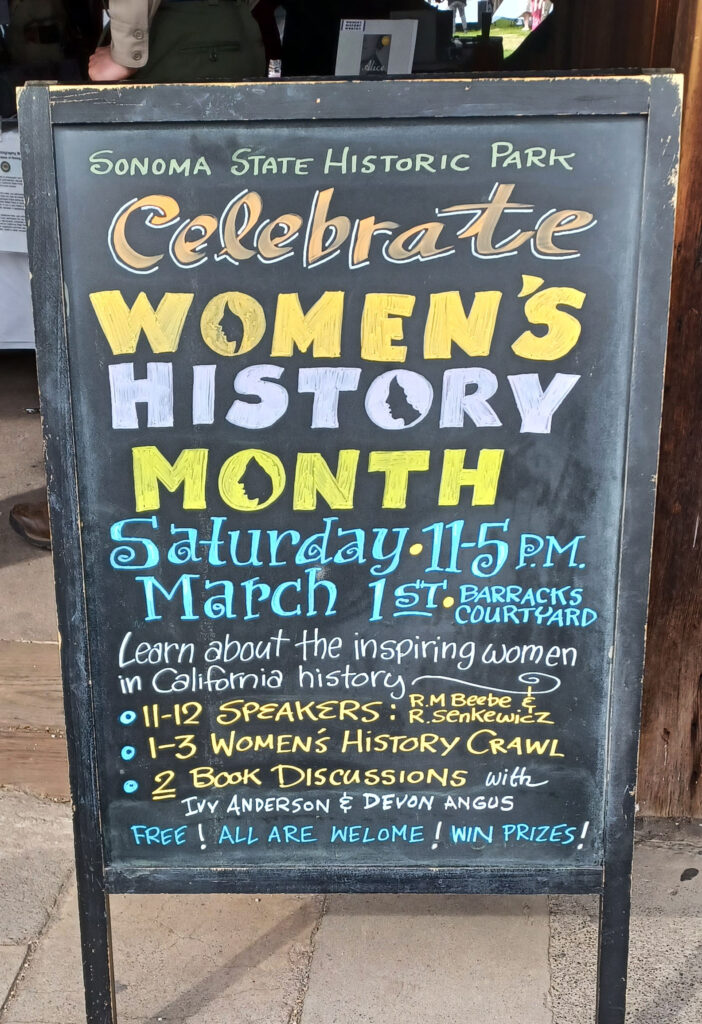 WOMEN'S
HISTORY
Alice
SONOMA STATE HISTORIC PARK
Celebrate
WOMEN'S
HISTORY
MONTH
Saturday • 11-5 P.M.
March 1ST • BARRACKS
COURTYARD
Learn about the inspiring women
in California history
• 11-12 SPEAKERS: R.M Beebe &
R. Senkewicz
• 1-3 WOMEN'S HISTORY CRAWL
• 2 BOOK DISCUSSIONS with
IVY ANDERSON & DEVON ANGUS
FREE! ALL ARE WELOME! WIN PRIZES!